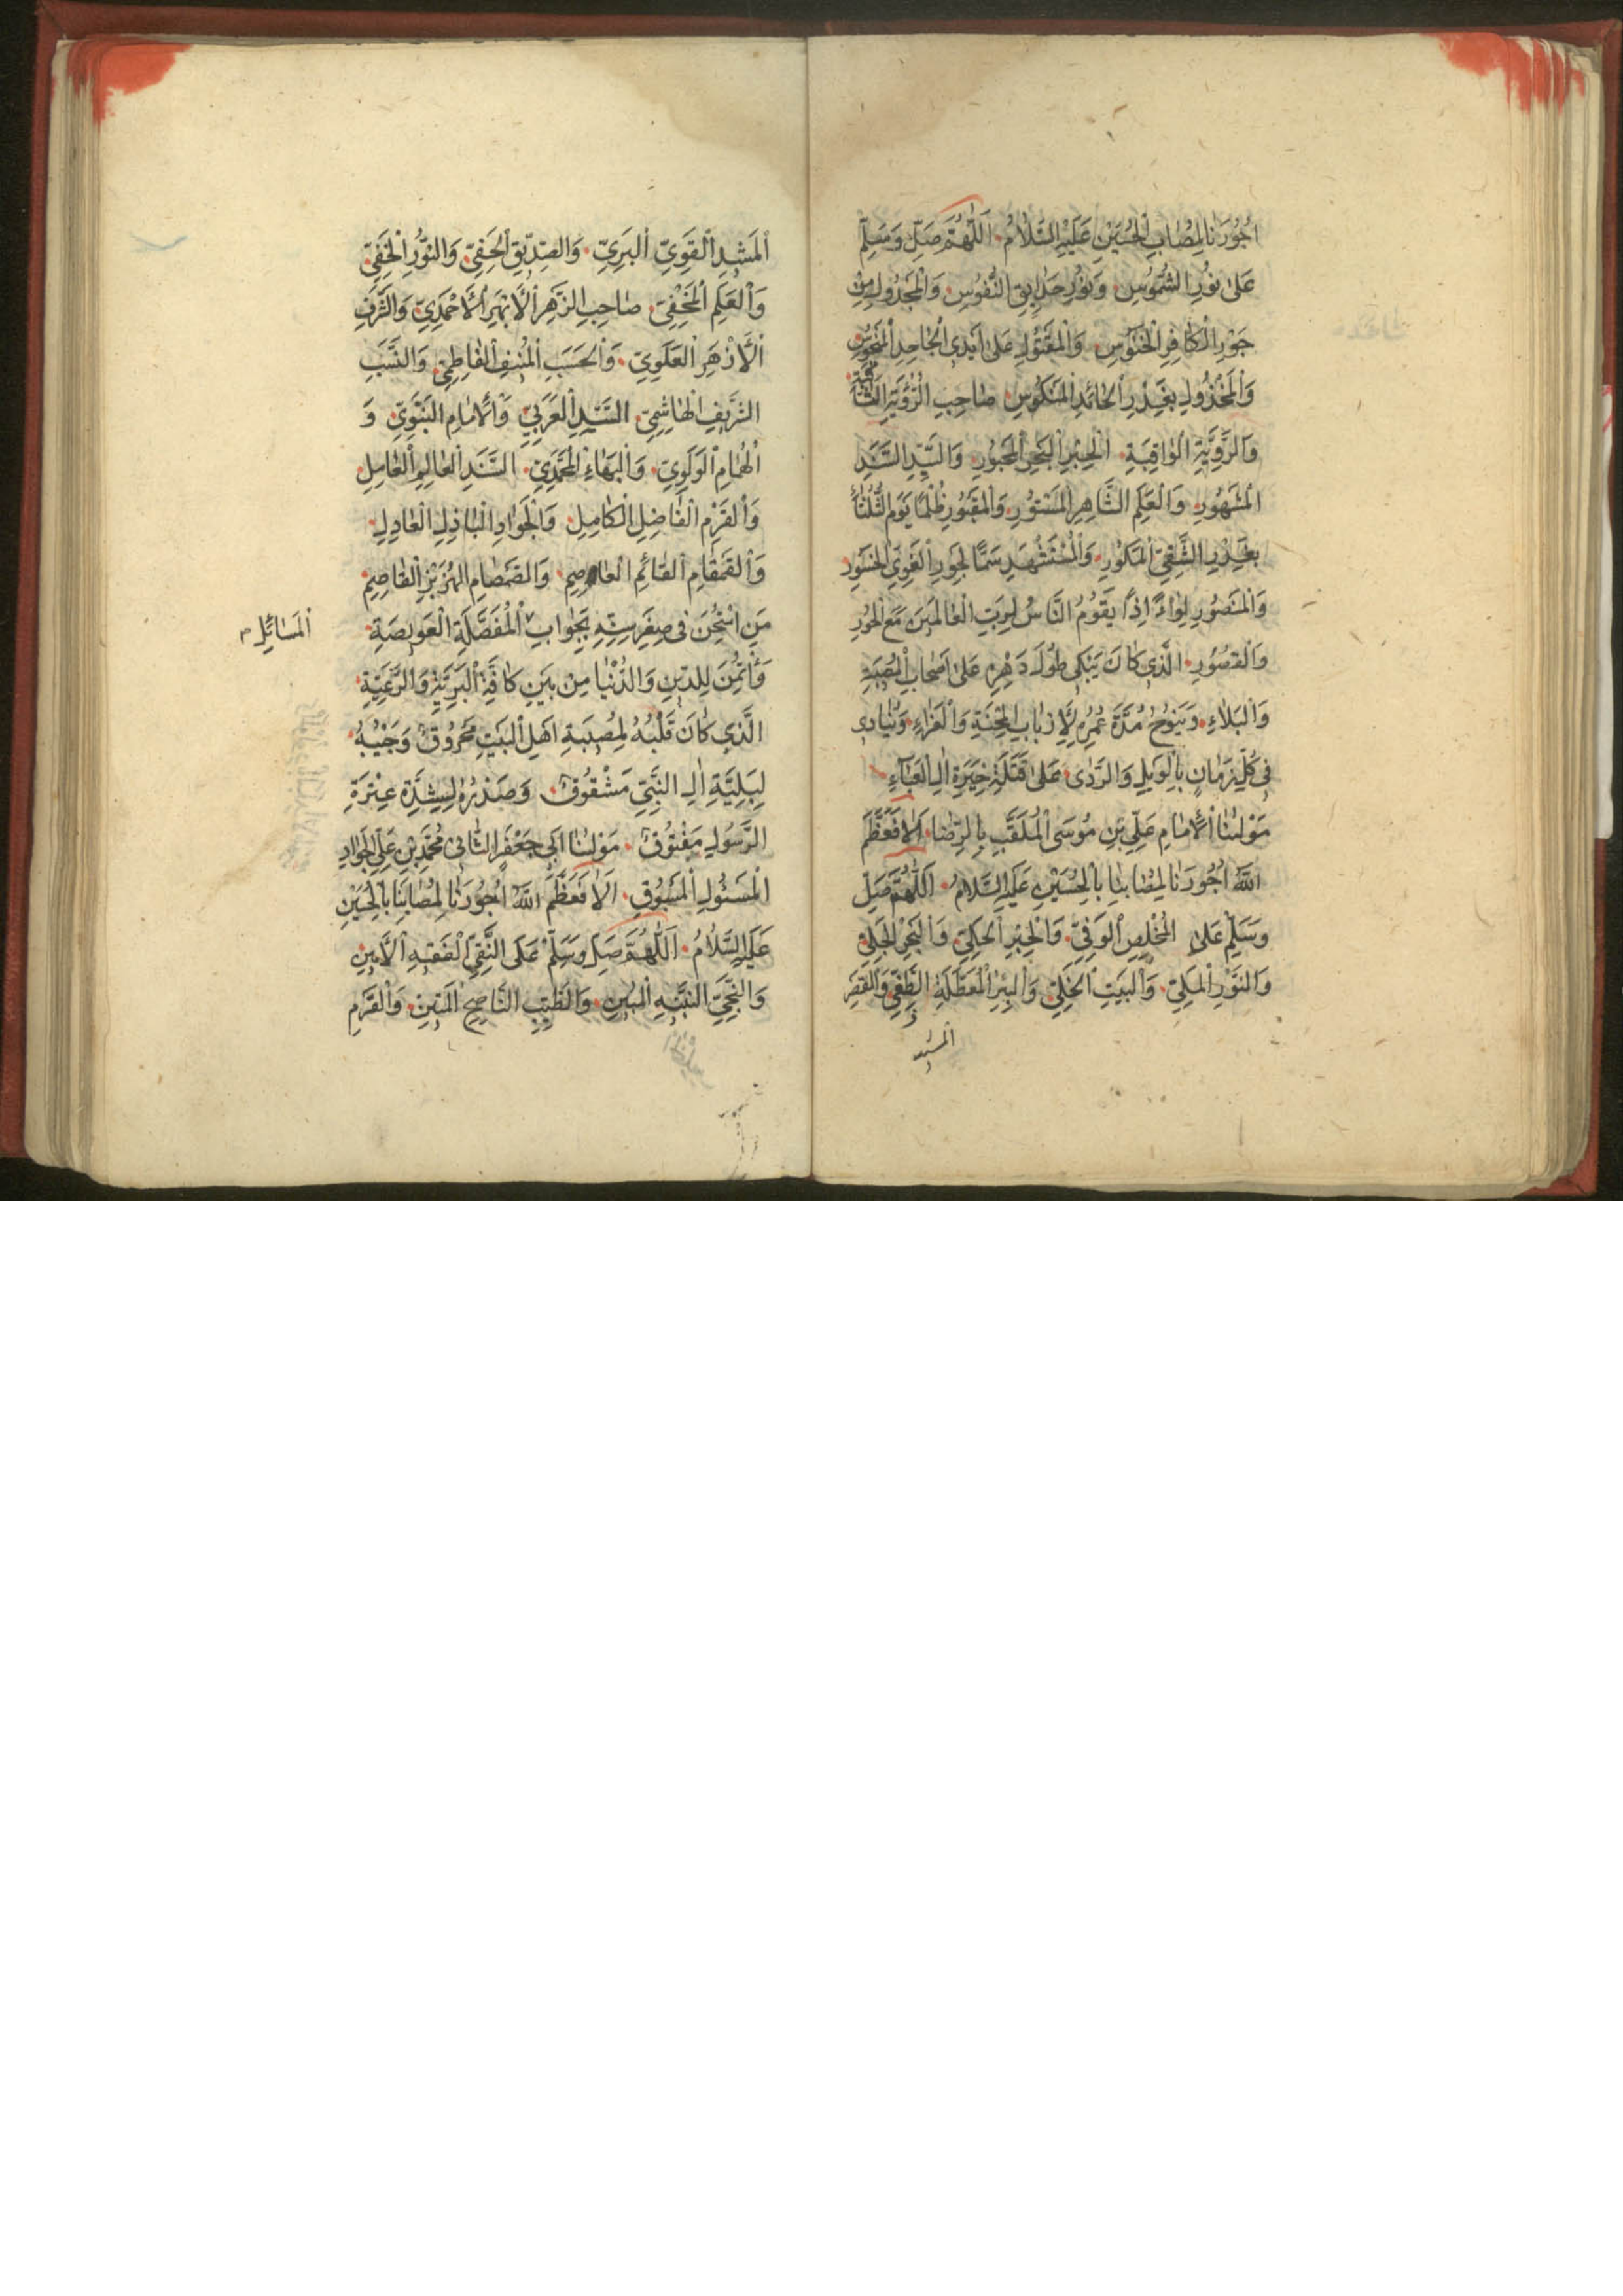 اُجُورَنَا لِمُصَابِ الْحُسَيْنِ عَلَيْهِ السَّلَامُ اَللّٰهُمَّ صَلِّ وَسَلِّمْ
عَلٰى نُورِ الشُّمُوسِ وَنُورِ حَدَايِقِ النُّفُوسِ وَالْمَجْدُولِ مِنْ
جَوْرِ الْكَافِرِ الْخَنُّوسِ وَالْمَقْتُولِ عَلٰى اَيْدِى الْجَاحِدِ الْمَنْحُوسِ
وَالْمَخْذُولِ بِغَدْرِ الْحَائِدِ الْمَنْكُوسِ صَاحِبِ الرُّؤْيَةِ الثَّاقِبَةِ
وَالرَّوِيَّةِ الْوَاقِبَةِ الْحِبْرِ الْبَحْرِ الْمَحْبُورِ وَالسَّيِّدِ السَّنَدِ
الْمَشْهُورِ وَالْعَلَمِ الشَّاهِرِ الْمَسْتُورِ وَالْمَقْبُورِ ظُلْمًا يَوْمَ الثُّلَثَاءِ
بِغَدْرِ الشَّقِيِّ الْمَكُورِ وَالْمُسْتَشْهَدِ سَمًّا لِجَوْرِ الْغَوِيِّ الْخَسُورِ
وَالْمَنْصُورِ لِوَاءً اِذَا يَقُومُ النَّاسُ لِرَبِّ الْعَالَمِينَ مَعَ الْحُورِ
وَالْقُصُورِ الَّذِى كَانَ يَبْكِى طُولَ دَهْرِهِ عَلٰى اَصْحَابِ الْمُصِيبَةِ
وَالْبَلَاءِ وَيَنُوحُ مُدَّةَ عُمْرِهِ لِاَرْبَابِ الْمِحْنَةِ وَالْعَزَاءِ وَيُنَادِى
فِى كُلِّ زَمَانٍ بِالْوَيْلِ وَالرَّدٰى عَلٰى قَتَلَةِ خِيَرَةِ اٰلِ الْعَبَاءِ
مَوْلٰينَا الْاِمَامِ عَلِيِّ بْنِ مُوسَى الْمُلَقَّبِ بِالرِّضَا اَلَا فَعَظَّمَ
اللّٰهُ اُجُورَنَا لِمُصَابِنَا بِالْحُسَيْنِ عَلَيْهِ السَّلَامُ اَللّٰهُمَّ صَلِّ
وَسَلِّمْ عَلٰى الْمُخْلِصِ الْوَفِيِّ وَالْحِبْرِ الْحَكِيِّ وَالْبَحْرِ الْجَلِيِّ
وَالنُّورِ الْمَلِيِّ وَالْبَيْتِ الْخَلِيِّ وَالْبِئْرِ الْمُعَطَّلَةِ وَالْقَصْرِ
المشيد
اَلْمَشِيدِ الْقَوِيِّ الْبَرِيِّ وَالصِّدِّيقِ الْحَفِيِّ وَالنُّورِ الْخَفِيِّ
وَالْعَلَمِ الْمَخْفِيِّ صَاحِبِ الزَّهْرِ الْاَبْهَرِ الْاَحْمَدِيِّ وَالشَّرَفِ
الْاَزْهَرِ الْعَلَوِيِّ وَالْحَسَبِ الْمُنِيفِ الْفَاطِمِيِّ وَالنَّسَبِ
الشَّرِيفِ الْهَاشِمِيِّ السَّيِّدِ الْعَرَبِيِّ وَالْاِمَامِ النَّبَوِيِّ وَ
الْهُمَامِ الْوَلَوِيِّ وَالْبَهَاءِ الْمُحَمَّدِيِّ السَّنَدِ الْعَالِمِ الْعَامِلِ
وَالْقَرْمِ الْفَاضِلِ الْكَامِلِ وَالْجَوَادِ الْبَاذِلِ الْعَادِلِ
وَالْقَمْقَامِ الْقَائِمِ الْعَاصِمِ وَالصَّمْصَامِ الْهِزَبْرِ الْقَاصِمِ
مَنِ امْتُحِنَ فِى صِغَرِ سِنِّهِ بِجَوَابِ الْمُفَصَّلَةِ الْعَوِيصَةِ
اَلْمَسَائِلِ
وَأْتُمِنَ لِلدِّينِ وَالدُّنْيَا مِنْ بَيْنِ كَافَّةِ الْبَرِيَّةِ وَالرَّعِيَّةِ
الَّذِى كَانَ قَلْبُهُ لِمُصِيبَةِ اَهْلِ الْبَيْتِ مَحْرُوقٌ وَجَيْبُهُ
لِبَلِيَّةِ اٰلِ النَّبِيِّ مَشْقُوقٌ وَصَدْرُهُ لِشِدَّةِ عِتْرَةِ
الرَّسُولِ مَفْتُوقٌ مَوْلٰينَا اَبِى جَعْفَرٍ الثَّانِى مُحَمَّدِ بْنِ عَلِيٍّ الْجَوَادِ
الْمَسْئُولِ الْمَسْبُوقِ اَلَا فَعَظَّمَ اللّٰهُ اُجُورَنَا لِمُصَابِنَا بِالْحُسَيْنِ
عَلَيْهِ السَّلَامُ اَللّٰهُمَّ صَلِّ وَسَلِّمْ عَلَى النَّقِيِّ الْفَقِيهِ الْاَمِينِ
وَالنَّجِيِّ النَّبِيهِ الْمُبِينِ وَالطَّبِيبِ النَّاصِحِ الْمَتِينِ وَالْقَرْمِ